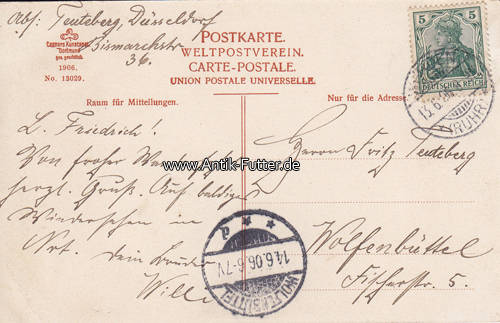 Abs: Teutzberg, Düsseldorf
Bismarckstr
36.
Cramers Kunstanst.
Dortmund
ges. geschützt.
1906.
No. 13029.
POSTKARTE.
WELTPOSTVEREIN.
CARTE-POSTALE.
UNION POSTALE UNIVERSELLE.
5 5
DEUTSCHES REICH
(RUHR)
13.6
Raum für Mitteilungen.
Nur für die Adresse
L. Friedrich!
Von froher
herzl. Gruß. Auf baldiges
Wiedersehen in
Dein Bruder
Willi
www.Antik-Futter.de
Herrn Fritz Teutzberg
Wolfenbüttel
Fischerstr. 5.
WOLFENBÜTTEL
14.6.06. 6-7V.